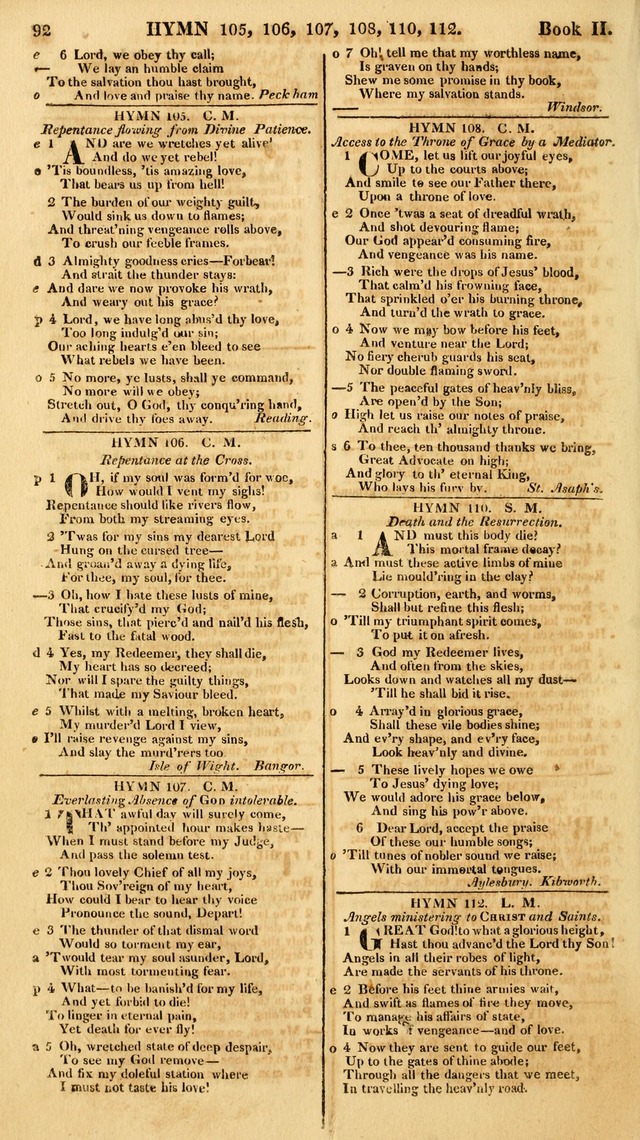 92 HYMN 105, 106, 107, 108, 110, 112. Book II.
e 6 Lord, we obey thy call;
— We lay an humble claim
To the salvation thou hast brought,
o And love and praise thy name. Peckham
HYMN 105. C. M.
Repentance flowing from Divine Patience.
e 1 AND are we wretches yet alive
And do we yet rebel!
o 'Tis boundless, 'tis amazing love,
That bears us up from hell!
2 The burden of our weighty guilt,
Would sink us down to flames;
And threat'ning vengeance rolls above,
To crush our feeble frames.
d 3 Almighty goodness cries—Forbear!
And strait the thunder stays:
e And dare we now provoke his wrath,
And weary out his grace?
p 4 Lord, we have long abus'd thy love,
Too long indulg'd our sin;
Our aching hearts e'en bleed to see
What rebels we have been.
o 5 No more, ye lusts, shall ye command,
No more will we obey;
Stretch out, O God, thy conqu'ring hand,
And drive thy foes away. Reading.
HYMN 106. C. M.
Repentance at the Cross.
p 1 OH, if my soul was form'd for woe,
How would I vent my sighs!
Repentance should like rivers flow,
From both my streaming eyes.
2 'Twas for my sins my dearest Lord
Hung on the cursed tree—
And groan'd away a dying life,
For thee, my soul, for thee.
—3 Oh, how I hate these lusts of mine,
That crucify'd my God;
Those sins, that pierc'd and nail'd his flesh,
Fast to the fatal wood.
d 4 Yes, my Redeemer, they shall die,
My heart has so decreed;
Nor will I spare the guilty things,
That made my Saviour bleed.
e 5 Whilst with a melting, broken heart,
My murder'd Lord I view,
o I'll raise revenge against my sins,
And slay the murd'rers too
Isle of Wight. Bangor.
HYMN 107. C. M.
Everlasting Absence of GOD intolerable.
1 THAT awful day will surely come,
Th' appointed hour makes haste—
When I must stand before my Judge,
And pass the solemn test.
e 2 Thou lovely Chief of all my joys,
Thou Sov'reign of my heart,
How could I bear to hear thy voice
Pronounce the sound, Depart!
e 3 The thunder of that dismal word
Would so torment my ear,
a 'Twould tear my soul asunder, Lord,
With most tormenting fear.
p 4 What—to be banish'd for my life,
And yet forbid to die!
To linger in eternal pain,
Yet death for ever fly!
a 5 Oh, wretched state of deep despair,
To see my God remove—
And fix my doleful station where
I must not taste his love!
o 7 Oh! tell me that my worthless name,
Is graven on thy hands;
Shew me some promise in thy book,
Where my salvation stands.
— Windsor.
HYMN 108. C. M.
Access to the Throne of Grace by a Mediator.
1 COME, let us lift our joyful eyes,
Up to the courts above;
And smile to see our Father there,
Upon a throne of love.
e 2 Once 'twas a seat of dreadful wrath,
And shot devouring flame;
Our God appear'd consuming fire,
And vengeance was his name.
—3 Rich were the drops of Jesus' blood,
That calm'd his frowning face,
That sprinkled o'er his burning throne,
And turn'd the wrath to grace.
o 4 Now we may bow before his feet,
And venture near the Lord;
No fiery cherub guards his seat,
Nor double flaming sword.
—5 The peaceful gates of heav'nly bliss,
Are open'd by the Son;
o High let us raise our notes of praise,
And reach th' almighty throne.
s 6 To thee, ten thousand thanks we bring,
Great Advocate on high;
And glory to th' eternal King,
Who lays his fury by. St. Asaph's.
HYMN 110. S. M.
Death and the Resurrection.
a 1 AND must this body die?
This mortal frame decay?
a And must these active limbs of mine
Lie mould'ring in the clay?
— 2 Corruption, earth, and worms,
Shall but refine this flesh;
o 'Till my triumphant spirit comes,
To put it on afresh.
— 3 God my Redeemer lives,
And often from the skies,
Looks down and watches all my dust—
'Till he shall bid it rise.
o 4 Array'd in glorious grace,
Shall these vile bodies shine;
And ev'ry shape, and ev'ry face,
Look heav'nly and divine.
— 5 These lively hopes we owe
To Jesus' dying love;
We would adore his grace below,
And sing his pow'r above.
6 Dear Lord, accept the praise
Of these our humble songs;
o 'Till tunes of nobler sound we raise;
With our immortal tongues.
Aylesbury. Kibworth.
HYMN 112. L. M.
Angels ministering to CHRIST and Saints.
1 GREAT God! to what a glorious height,
Hast thou advanc'd the Lord thy Son!
Angels in all their robes of light,
Are made the servants of his throne.
e 2 Before his feet thine armies wait,
And swift as flames of fire they move,
To manage his affairs of state,
In works of vengeance—and of love.
o 4 Now they are sent to guide our feet,
Up to the gates of thine abode;
Through all the dangers that we meet,
In travelling the heav'nly road.